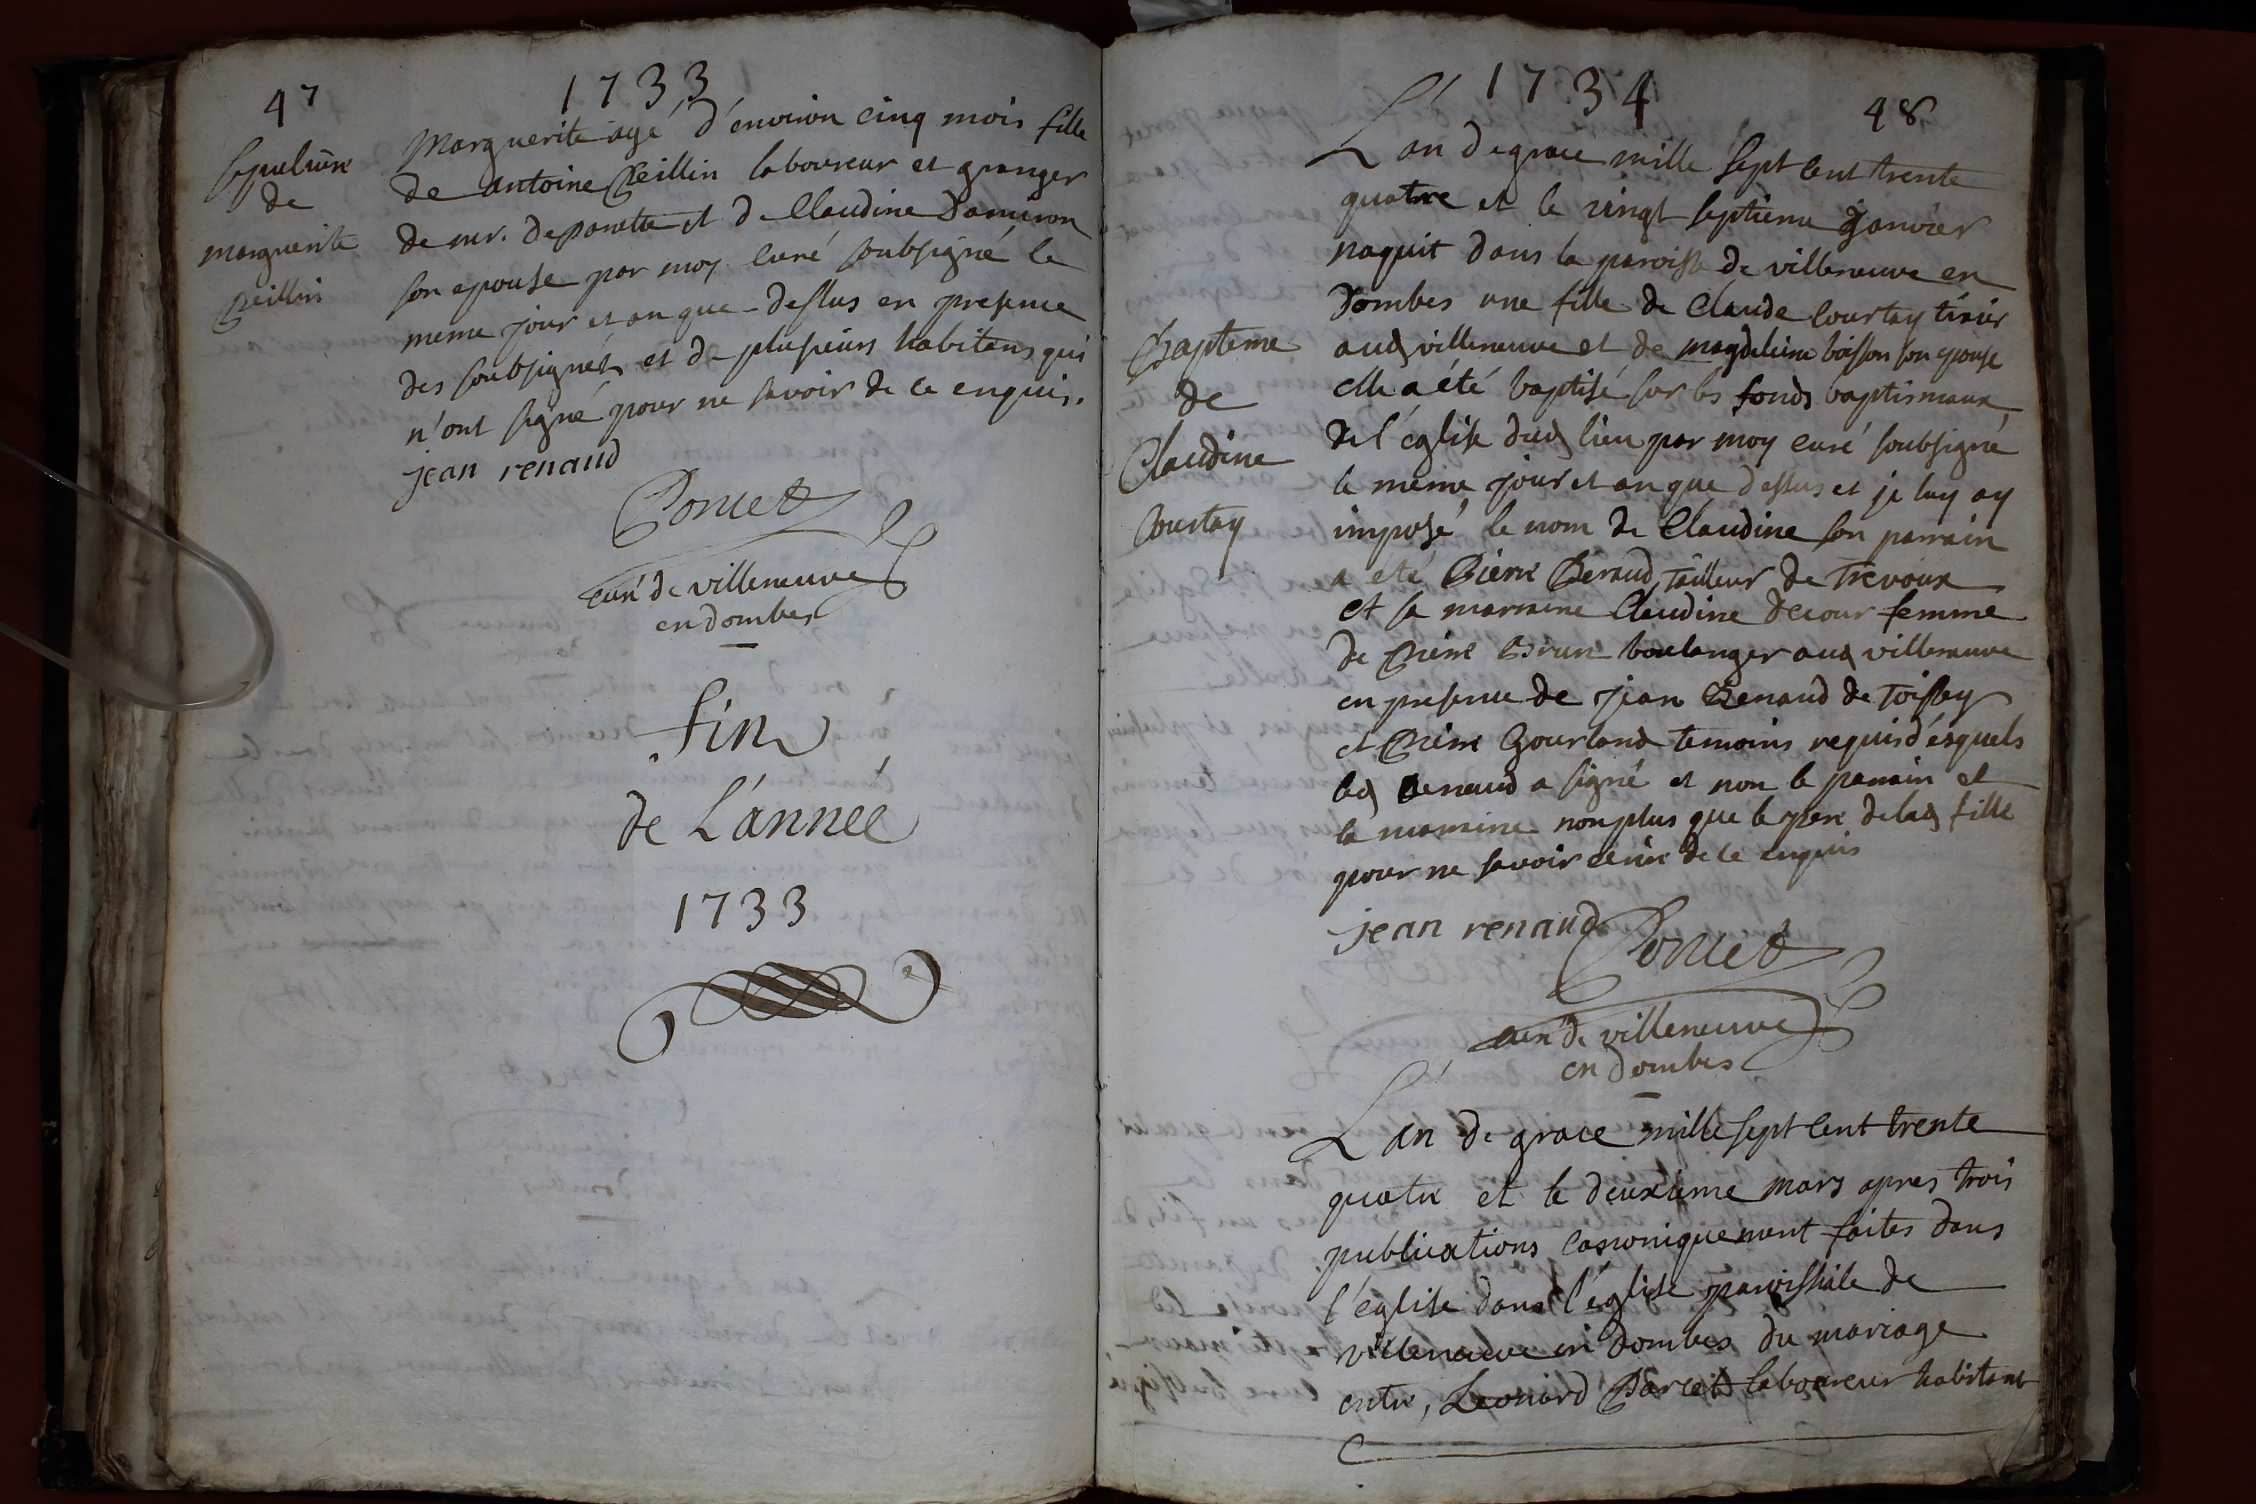 47
1733
sepulture
de
marguerite
Peillin
Marguerite agé d'environ cinq mois fille
de antoine Peillin laboureur et granger
de mr. deparette et de Claudine Damiron
son epouse par moy curé soubsigné le
meme jour et an que dessus en presence
des soubsignés et de plusieurs habitans qui
n'ont signé pour ne savoir de ce enquis.
jean renaud
Poncet
curé de villeneuve
en dombes
fin
de L'année
1733
1734
48
Bapteme
de
Claudine
Courtay
L'an de grace mille sept cent trente
quatre et le vingt septieme Janvier
naquit dans la paroisse de villeneuve en
Dombes une fille de Claude Courtay
aud villeneuve et de magdeleine boisson son epouse
elle a été baptisé sur les fonds baptismaux
de l'église dud lieu par moy curé soubsigné
le meme jour et an que dessus et je luy ay
imposé le nom de Claudine son parrain
a eté Pierre Beraud, Tailleur de Trevoux
et sa marraine Claudine Decour femme
de Pierre Brun boulanger aud villeneuve
en presence de jean Renaud de Toissey
et Pierre Gourland temoins requis d'esquels
led Renaud a signé et non le parrain et
la marraine non plus que le pere de lad fille
pour ne savoir ecrire de ce enquis
jean renaud
Poncet
curé de villeneuve
en Dombes
L'an de grace mille sept cent trente
quatre et le deuxieme mars apres trois
publications canoniquement faites dans
l'eglise dans l'église paroissiale de
villeneuve en Dombes du mariage
entre, Leonard Parcet laboureur habitant